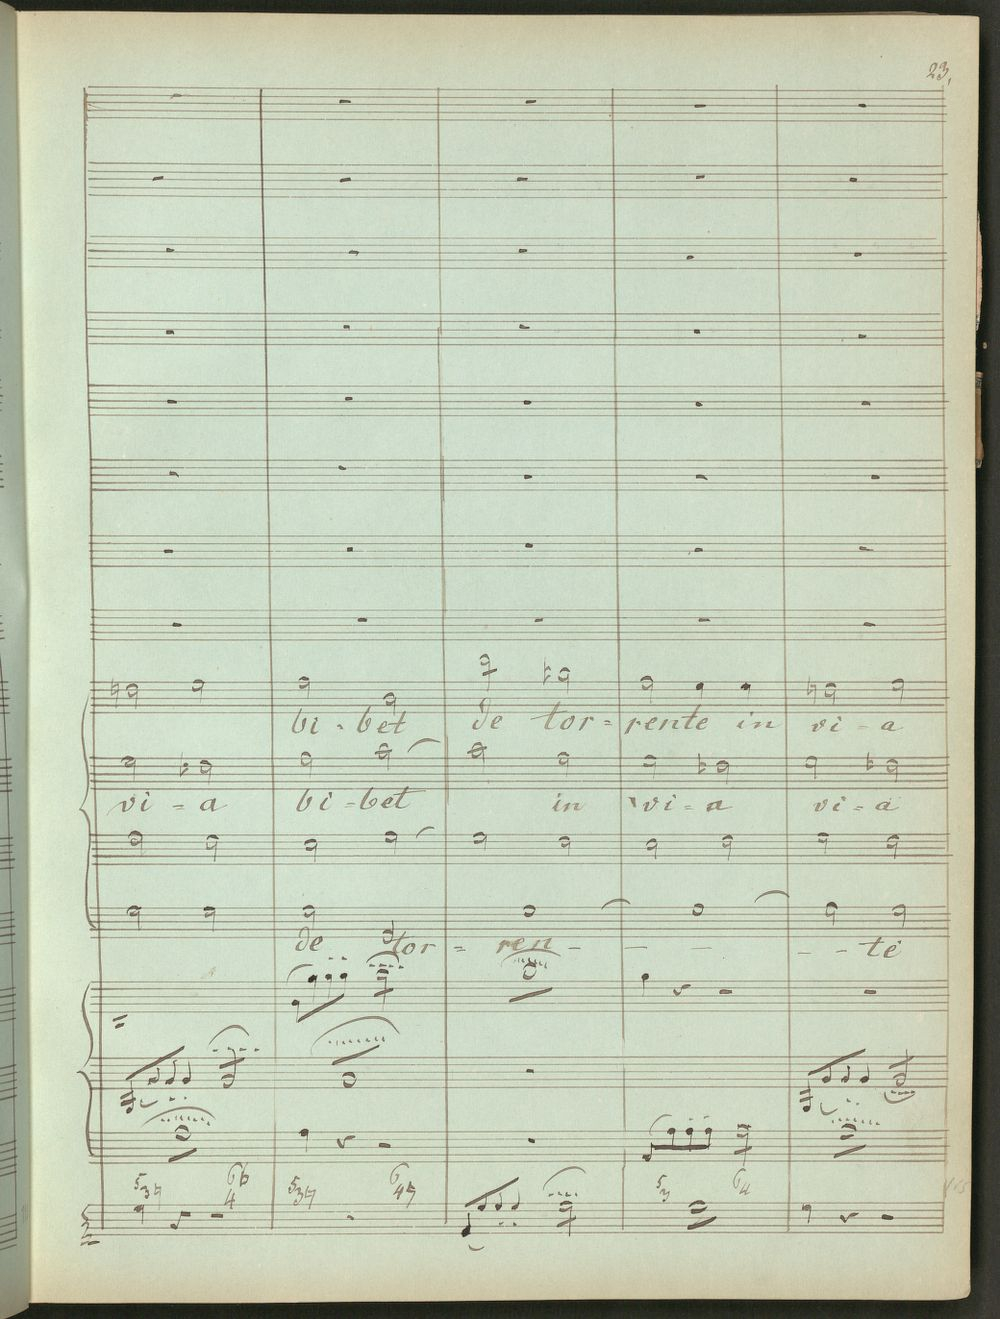 23.
bi - bet de tor - rente in vi - a
vi - a bi - bet in vi - a vi - a
de tor - ren - - - - - te
5 3♮ 6♭ 4 5 3♮ 6 4♮ 5 3 6 4